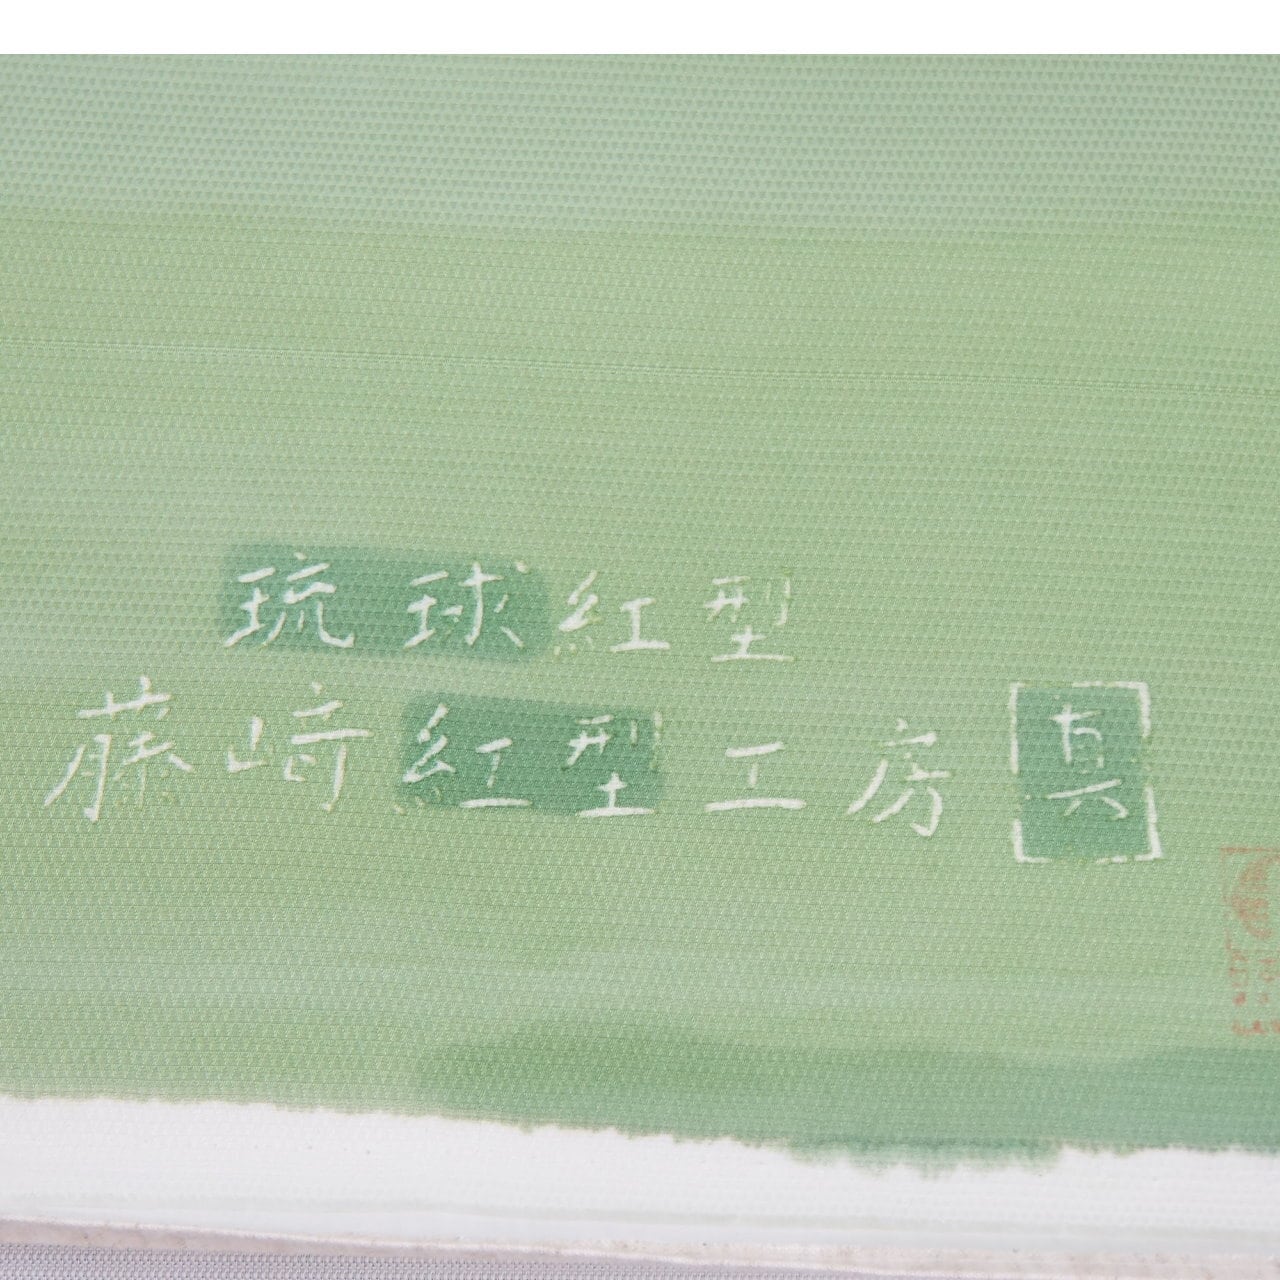 琉球紅型
藤崎紅型工房 真